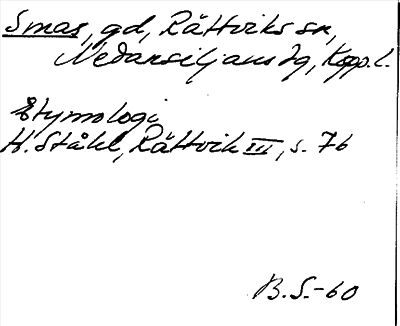 Smas, gd, Rättviks sn,
Nedansiljans tg, Kopp. l.
Etymologi
H. Ståhl, Rättvik III, s. 76
B.S.-60